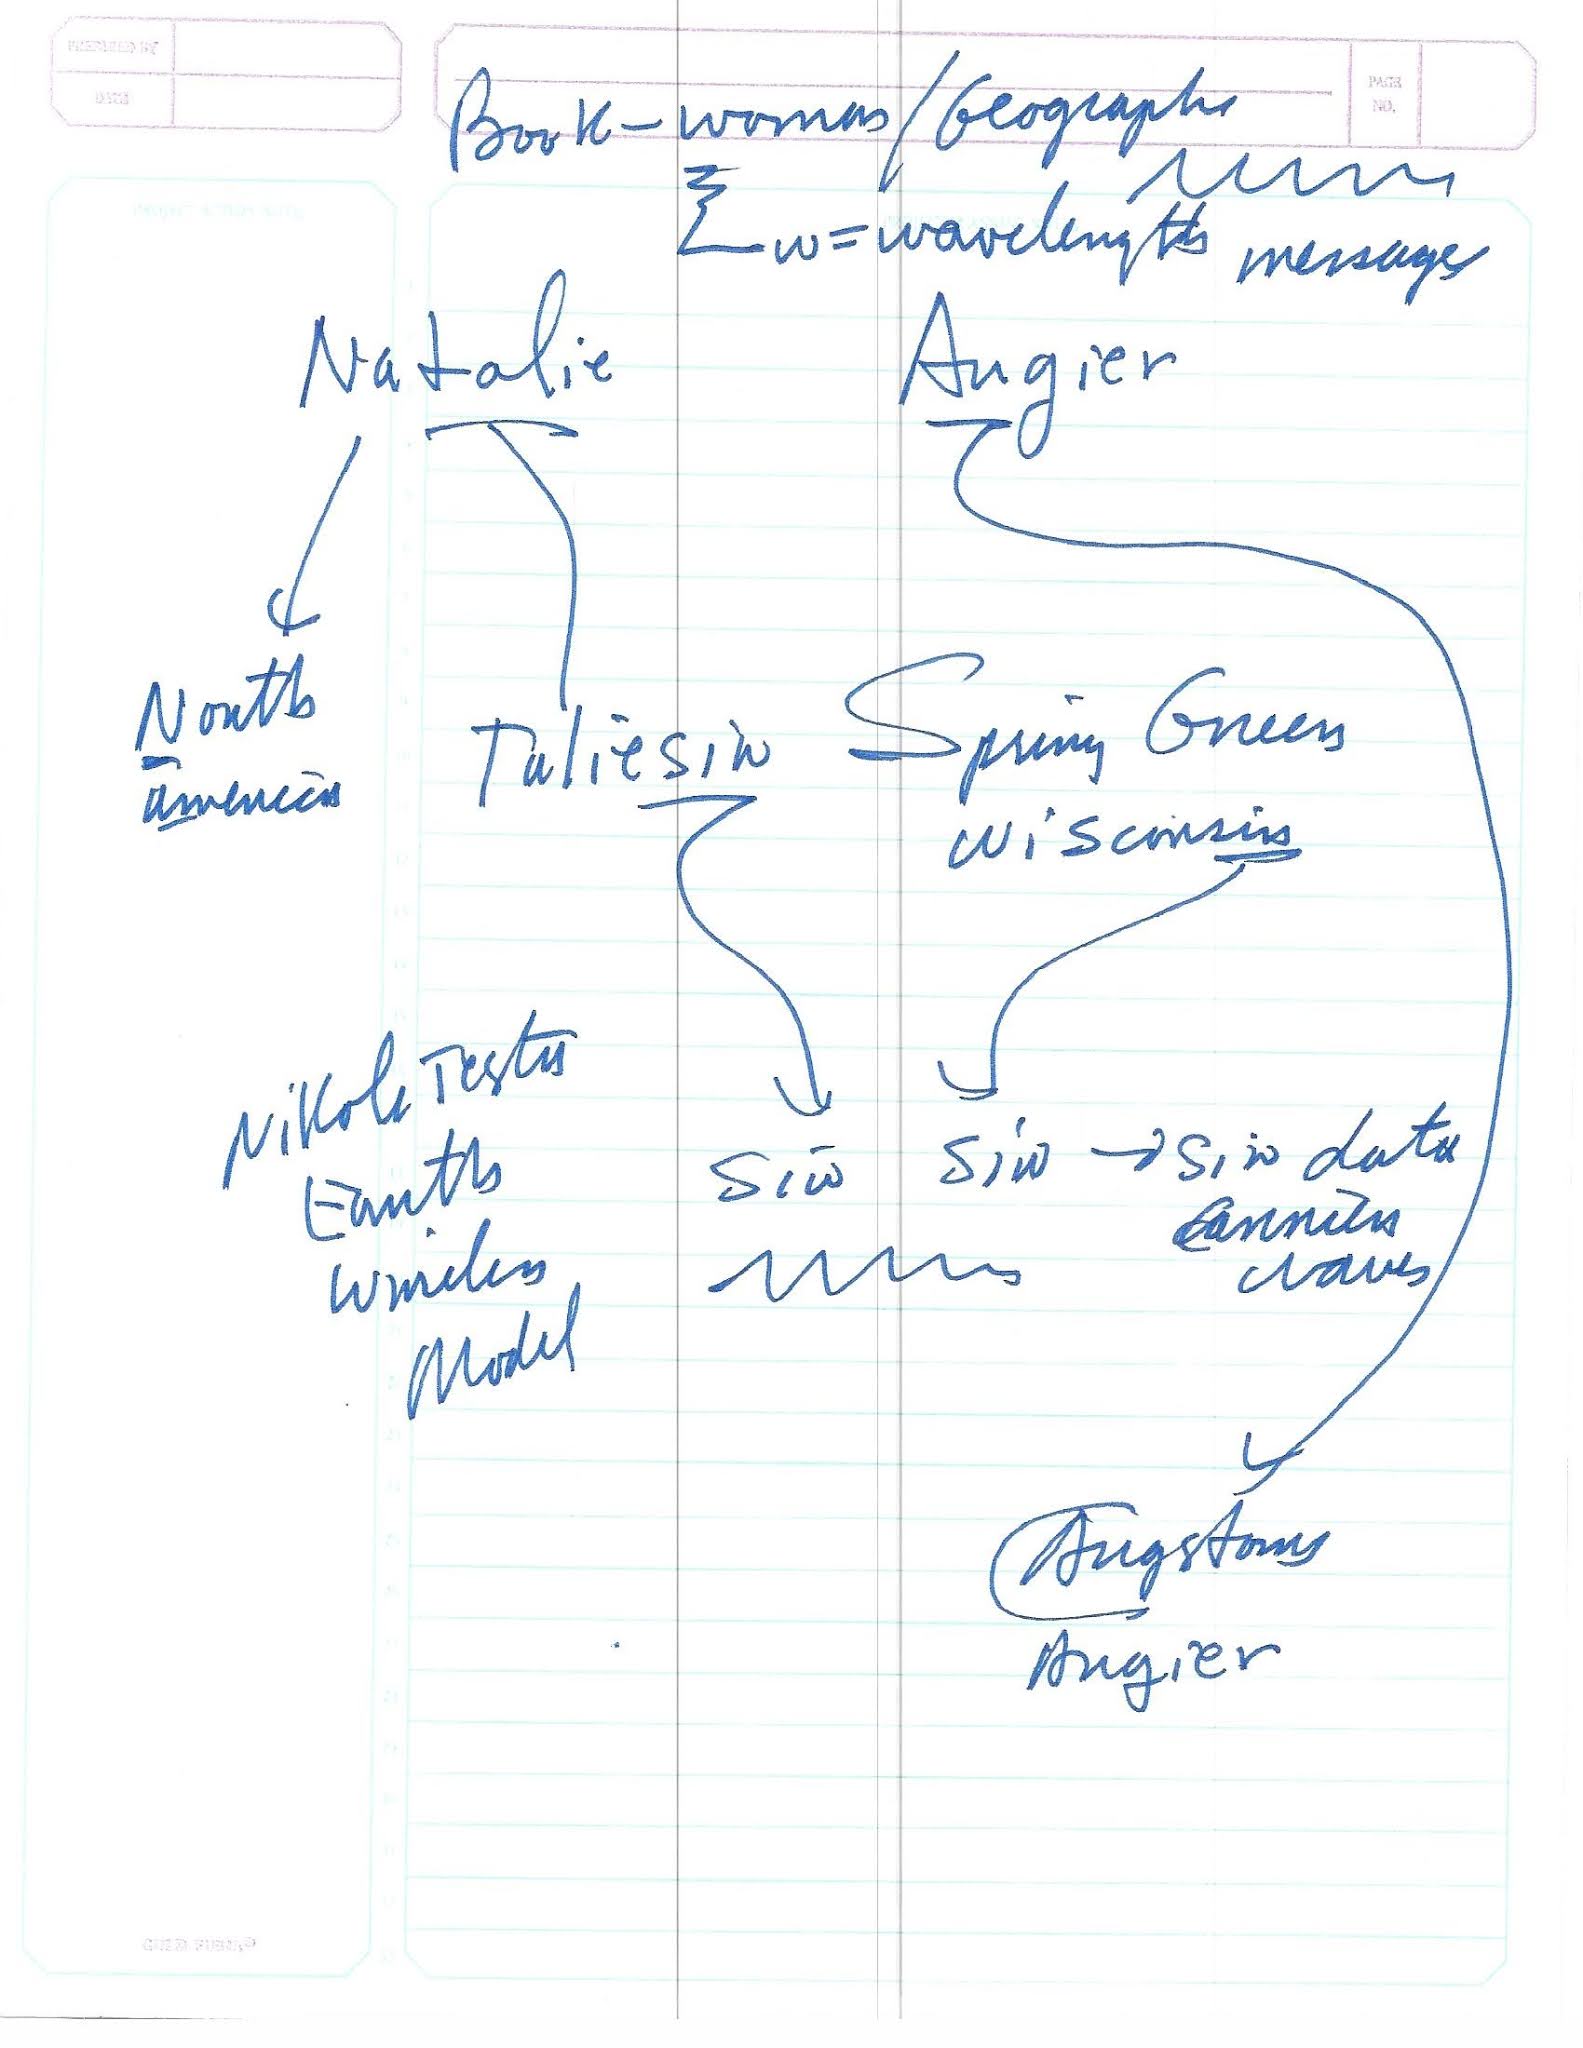 PREPARED BY
DATE
PAGE NO.
Book - woman / Geography
w = wavelengths messages
Natalie Angier
North
america
Taliesin Spring Green
Wisconsin
Nikola Tesla
Earth
Wireless
Model
Sin Sin → Sin data
carrier
waves
Angstoms
Angier